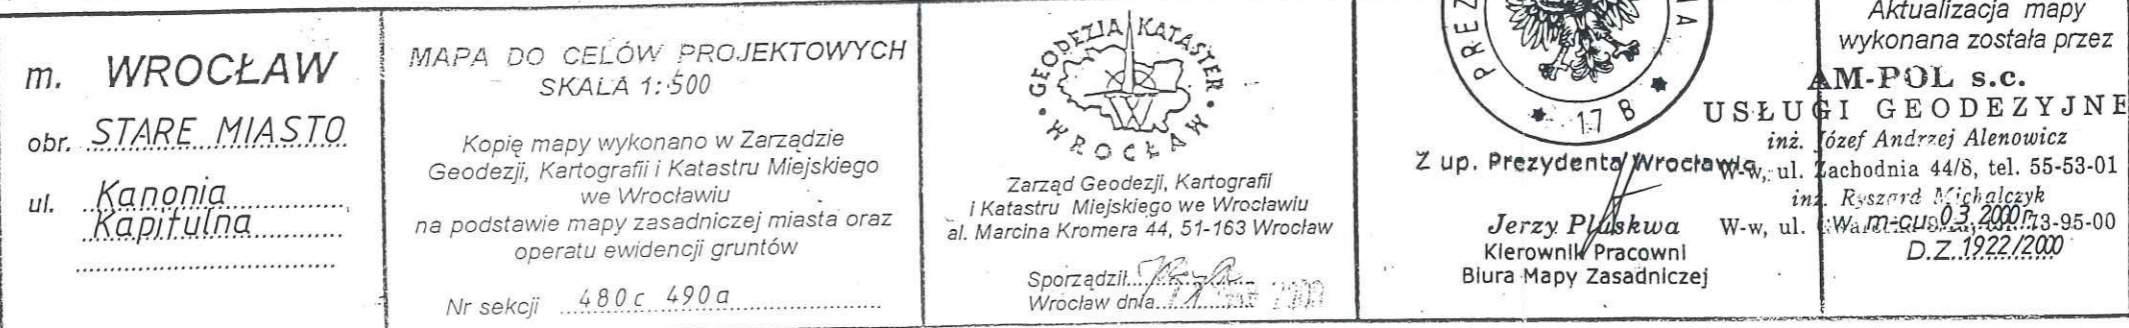 m. WROCŁAW
obr. STARE MIASTO
ul. Kanonia
Kapitulna
MAPA DO CELÓW PROJEKTOWYCH
SKALA 1:500
Kopię mapy wykonano w Zarządzie
Geodezji, Kartografii i Katastru Miejskiego
we Wrocławiu
na podstawie mapy zasadniczej miasta oraz
operatu ewidencji gruntów
Nr sekcji 480c 490a
GEODEZJA KATASTER
W
WROCŁAW
Zarząd Geodezji, Kartografii
i Katastru Miejskiego we Wrocławiu
al. Marcina Kromera 44, 51-163 Wrocław
Sporządził
Wrocław dnia
PREZ
NA
* 17 B *
Z up. Prezydenta Wrocławia
Jerzy Pluskwa
Kierownik Pracowni
Biura Mapy Zasadniczej
Aktualizacja mapy
wykonana została przez
AM-POL s.c.
USŁUGI GEODEZYJNE
inż. Józef Andrzej Alenowicz
W-w, ul. Zachodnia 44/8, tel. 55-53-01
inż. Ryszard Michalczyk
W-w, ul. 73-95-00
w m-cu 03.2000r.
D.Z. 1922/2000